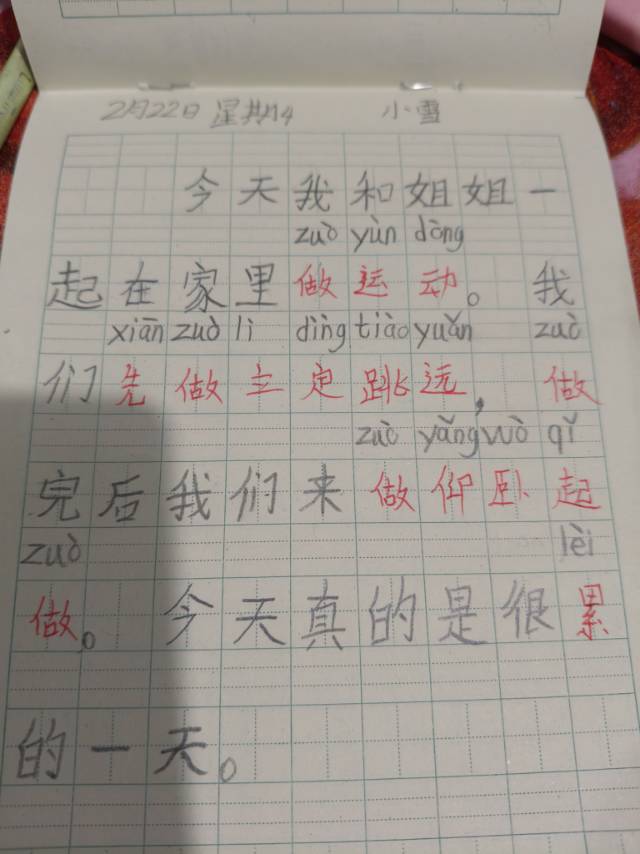 2月22日 星期4 小雪
今天我和姐姐一
zuò yùn dòng
起在家里做运动。我
xiān zuò li dìng tiào yuǎn zuò
们先做立定跳远,做
zuò yǎng wò qǐ
完后我们来做仰卧起
zuò lèi
做。今天真的是很累
的一天。